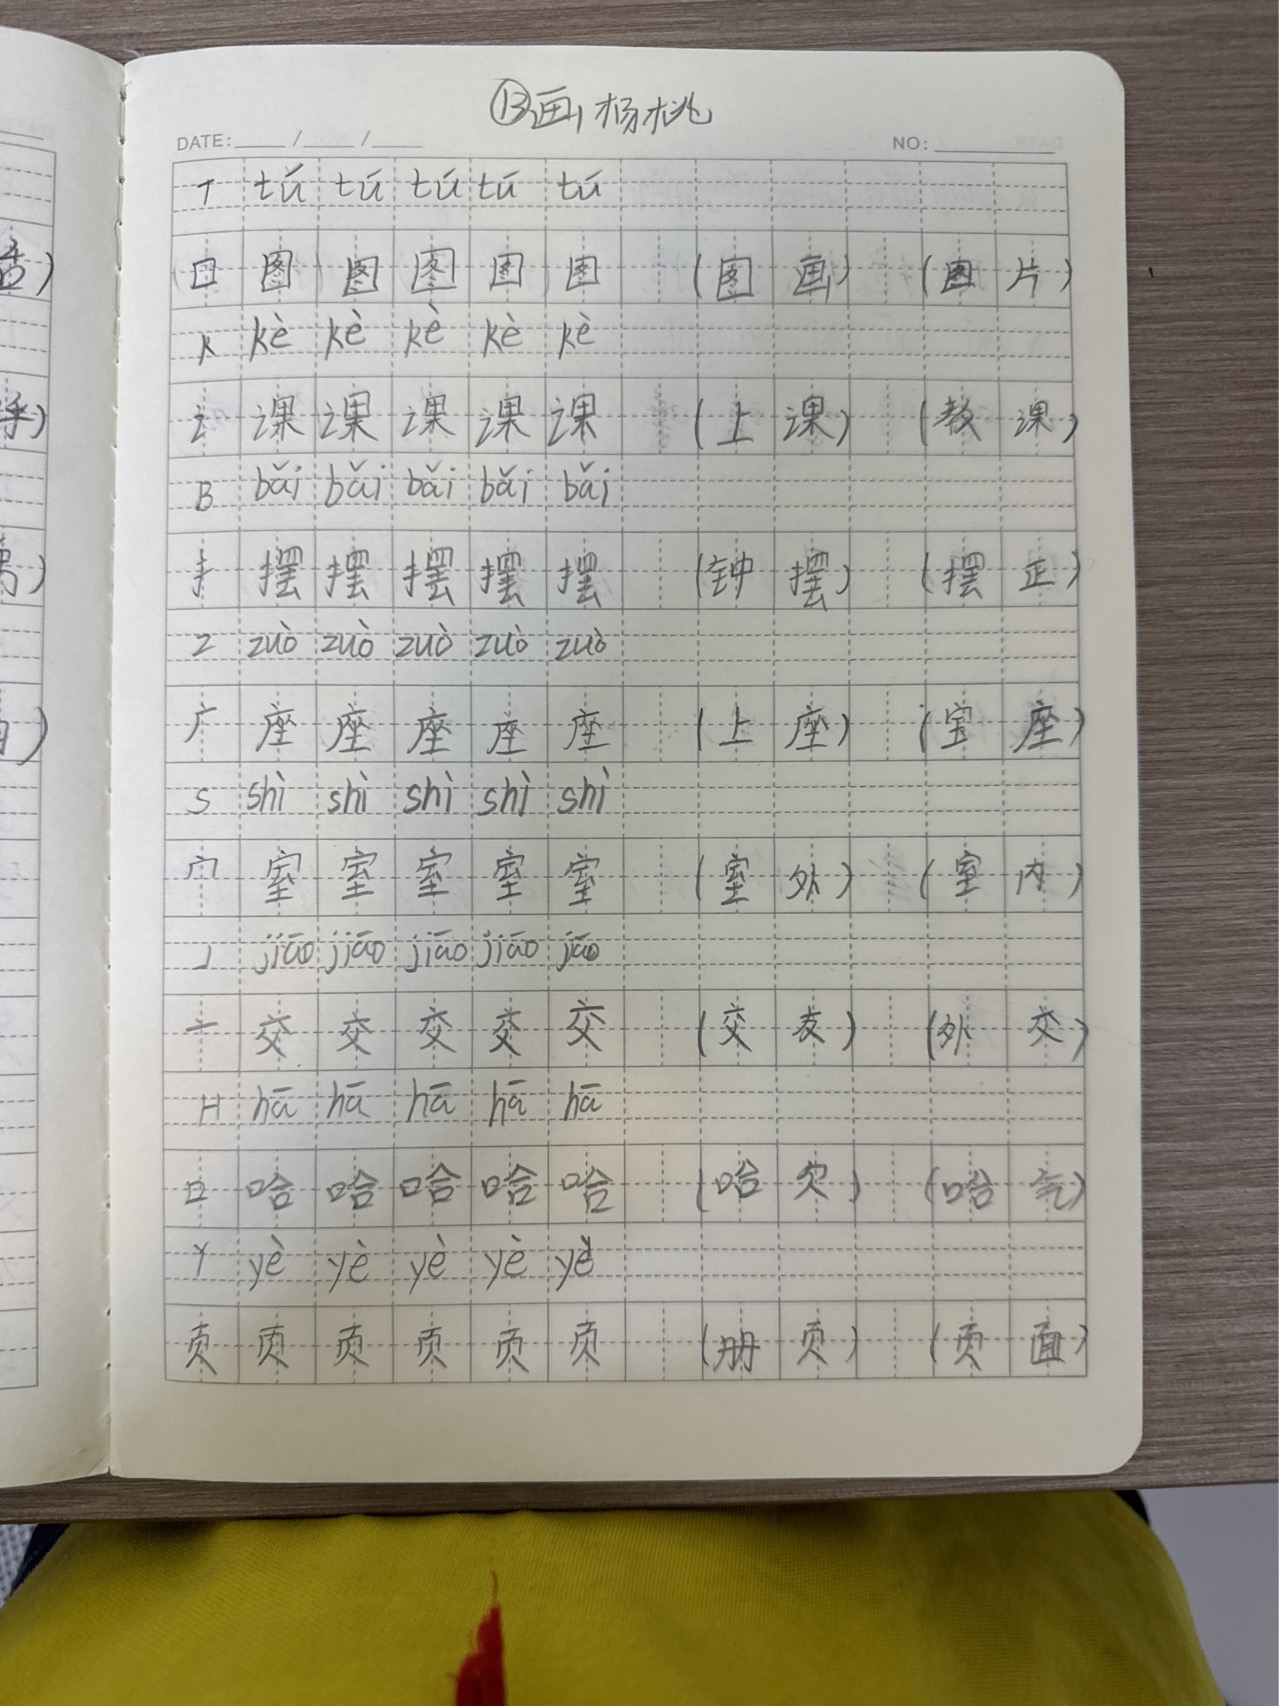 ⑬画杨桃
DATE: / / NO:
T tú tú tú tú tú
囗 图 图 图 图 图 (图画) (图片)
K kè kè kè kè kè
讠 课 课 课 课 课 (上课) (教课)
B bǎi bǎi bǎi bǎi bǎi
扌 摆 摆 摆 摆 摆 (钟摆) (摆正)
Z zuò zuò zuò zuò zuò
广 座 座 座 座 座 (上座) (宝座)
S shì shì shì shì shì
宀 室 室 室 室 室 (室外) (室内)
J jiāo jiāo jiāo jiāo jiāo
亠 交 交 交 交 交 (交友) (外交)
H hā hā hā hā hā
口 哈 哈 哈 哈 哈 (哈欠) (哈气)
Y yè yè yè yè yè
页 页 页 页 页 页 (册页) (页面)